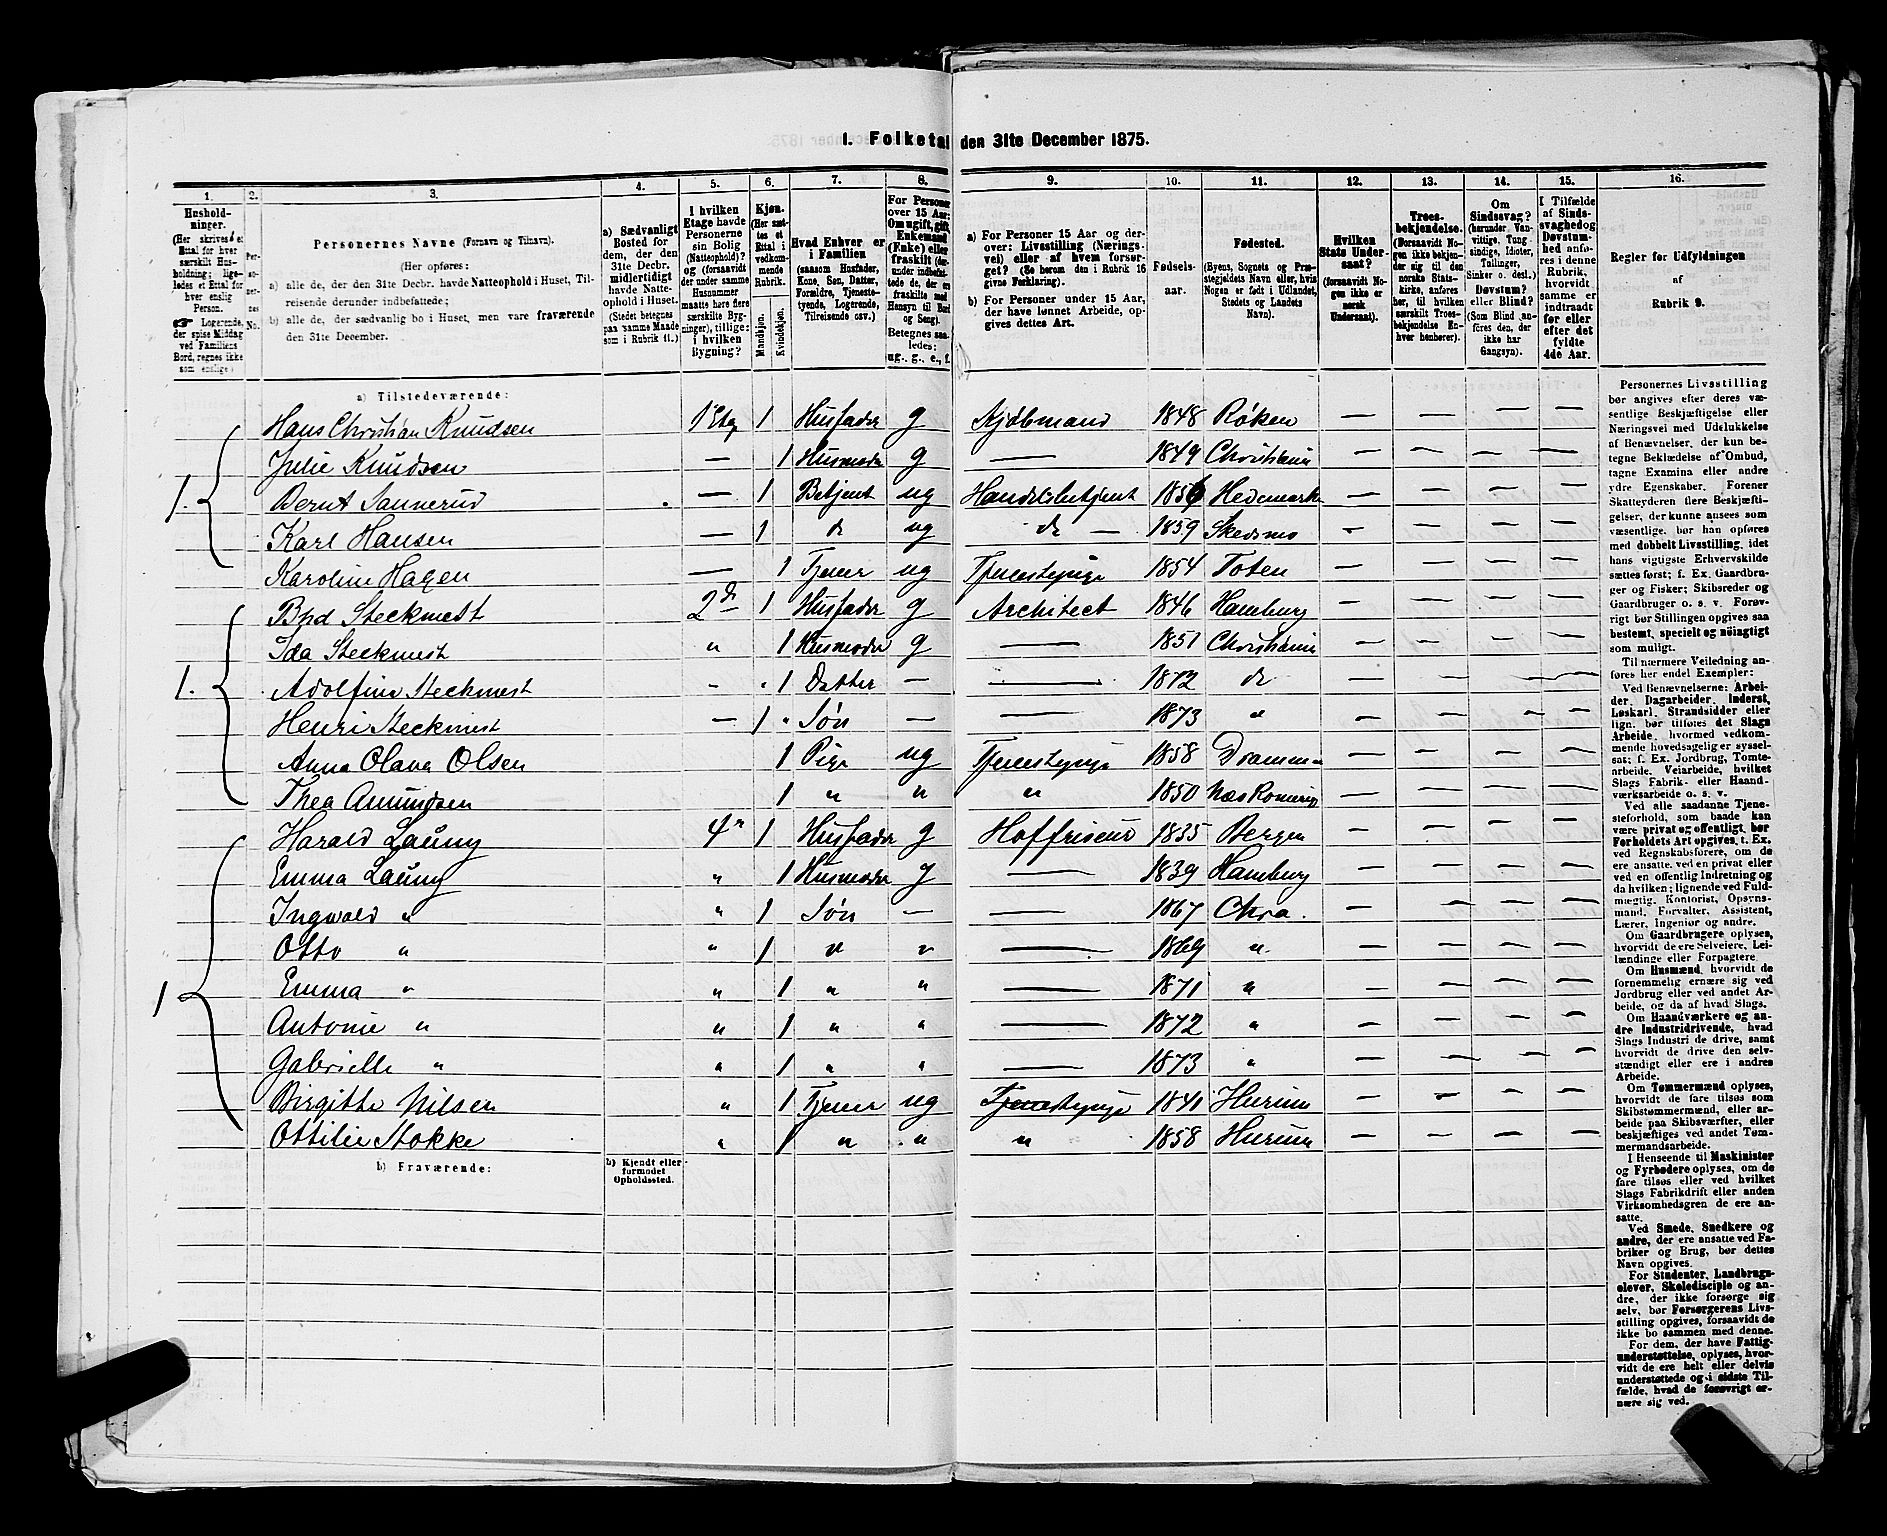 1. Folketal den 31te December 1875.
1. 2. 3. 4. 5. 6. 7. 8. 9. 10. 11. 12. 13. 14. 15. 16.
Hushold-
ninger.
(Her skrives et
Ettal for hver
særskilt Hus-
holdning; lige-
ledes et Ettal for
hver enslig
Person.
☞ Logerende,
der spise Middag
ved Familiens
Bord, regnes ikke
som enslige)
Per-
so-
ner-
nes
No.
Personernes Navne (Fornavn og Tilnavn).
(Her opføres:
a) alle de, der den 31te Decbr. havde Natteophold i Huset, Til-
reisende derunder indbefattede;
b) alle de, der sædvanlig bo i Huset, men vare fraværende
den 31te December.
a) Sædvanligt
Bosted for
dem, der den
31te Decbr.
midlertidigt
havde Natte-
ophold i Huset.
(Stedet betegnes
paa samme Maade
som i Rubrik 11.)
I hvilken
Etage havde
Personerne
sin Bolig
(Natteophold)?
og (forsaavidt
der under samme
Husnummer
maatte høre flere
særskilte Byg-
ninger), tillige:
i hvilken
Bygning?
Kjøn.
(Her sæt-
tes et
Ettal i
vedkom-
mende
Rubrik.
Mandkjøn.
Kvindekjøn.
Hvad Enhver er
i Familien
(saasom Husfader,
Kone, Søn, Datter,
Forældre, Tjeneste-
tyende, Logerende,
Tilreisende osv.)
For Personer
over 15 Aar:
Om ugift, gift,
Enkemand
(Enke) eller
fraskilt
Betegnes saa-
ledes:
ug. g., e., f.
a) For Personer 15 Aar og der-
over: Livsstilling (Nærings-
vei) eller af hvem forsør-
get? (Se herom den i Rubrik 16
givne Forklaring).
b) For Personer under 15 Aar,
der have lønnet Arbeide, op-
gives dettes Art.
Fødsels-
aar.
Fødested.
(Byens, Sognets og Præ-
stegjeldets Navn eller, hvis
Nogen er født i Udlandet,
Stedets og Landets
Navn).
Hvilken
Stats Under-
saat?
(forsaavidt No-
gen ikke er
norsk
Undersaat).
Troes-
bekjendelse.
(Forsaavidt No-
gen ikke bekjen-
der sig til den
norske Stats-
kirke, anføres
her, til hvilken
særskilt Troes-
bekjendelse En-
hver henhører).
Om
Sindssvag?
(herunder Van-
vittige, Tung-
sindige, Idioter,
Tullinger,
Sinker o. desl.)
Døvstum?
eller Blind?
(Som Blind an-
føres den, der
ikke har
Gangsyn).
I Tilfælde
af Sinds-
svaghed og
Døvstum-
hed anfø-
res i denne
Rubrik,
hvorvidt
samme er
indtraadt
før eller
efter det
fyldte
4de Aar.
Regler for Udfyldningen
af
Rubrik 9.
a) Tilstedeværende:
Hans Christian Knudsen 1 Etg 1 Husfader g Kjøbmand 1848 Røken — — — —
1. Julie Knudsen — 1 Husmoder g — 1849 Christiania — — — —
Bernt Sannerud — 1 Betjent ug Handelsbetjent 1856 Hedemarken — — — —
Karl Hansen — 1 do ug do — 1859 Skedsmo — — — —
Karoline Hagen — 1 Tjener ug Tjenestepige 1854 Toten — — — —
Bhd Steckmest 2 do 1 Husfader g Architect 1846 Hamburg — — — —
Ida Steckmest " 1 Husmoder g — 1851 Christiania — — — —
1. Adolfine Steckmest " 1 Datter — — 1872 do — — — —
Henri Steckmest — 1 " Søn — — 1873 " — — — —
Anna Olava Olsen 1 Pige ug Tjenestepige 1858 Drammen — — — —
Thea Amundsen 1 " " " 1850 Næs Romerige — — — —
Harald Launy 4 " 1 Husfader g Hoffriseur 1835 Bergen — — — —
Emma Launy " 1 Husmoder g — 1839 Hamburg — — — —
Ingwald " " 1 Søn — — 1867 Chra. — — — —
Otto " " 1 " " — 1869 " — — — —
1 Emma " " 1 " " — 1871 " — — — —
Antonie " " 1 " " — 1872 " — — — —
Gabrielle " " 1 " " — 1873 " — — — —
Birgitte Nilsen " 1 Tjener ug Tjenestepige 1841 Hurum — — — —
Ottilie Stokke " 1 " " " 1858 Hurum — — — —
b) Fraværende:
b) Kjendt eller
formodet
Opholdssted.
Personernes Livsstilling
bør angives efter deres væ-
sentlige Beskjæftigelse eller
Næringsvei med Udelukkelse
af Benævnelser, der kun be-
tegne Beklædelse af Ombud,
tagne Examina eller andre
ydre Egenskaber. Forener
Skatteyderen flere Beskjæfti-
gelser, der kunne ansees som
væsentlige, bør han opføres
med dobbelt Livsstilling, idet
hans vigtigste Erhvervskilde
sættes først; f. Ex. Gaardbru-
ger og Fisker; Skibsreder og
Gaardbruger o. s. v. Forøv-
rigt bør Stillingen opgives saa
bestemt, specielt og nøiagtigt
som muligt.
Til nærmere Veiledning an-
føres her endel Exempler:
Ved Benævnelserne: Arbei-
der, Dagarbeider, Inderst,
Løskarl, Strandsidder eller
lign. bør tilføies det Slags
Arbeide, hvormed vedkom-
mende hovedsagelig er syssel-
sat; f. Ex. Jordbrug, Tomte-
arbeide, Veiarbeide, hvilket
Slags Fabrik- eller Haand-
værksarbeide o. s. v.
Ved alle saadanne Tjene-
steforhold, som baade kan
være privat og offentligt, bør
Forholdets Art opgives, t. Ex.
ved Regnskabsførere, om de
ere ansatte ved en privat eller
ved en offentlig Indretning og
da hvilken; lignende ved Fuld-
mægtig, Kontorist, Opsyns-
mand, Forvalter, Assistent,
Lærer, Ingeniør og andre.
Om Gaardbrugere oplyses,
hvorvidt de ere Selveiere, Lei-
lændinge eller Forpagtere.
Om Husmænd, hvorvidt de
fornemmelig ernære sig ved
Jordbrug eller ved andet Ar-
beide, og da af hvad Slags.
Om Haandværkere og an-
dre Industridrivende, hvad
Slags Industri de drive, samt
hvorvidt de drive den selv-
stændigt eller ere i andres
Arbeide.
Om Tømmermænd oplyses,
hvorvidt de fare tilsøs som
Skibstømmermænd, eller ar-
beide paa Skibsværfter, eller
beskjæftiges ved andet Tøm-
mermandsarbeide.
I Henseende til Maskinister
og Fyrbødere oplyses, om de
fare tilsøs eller ved hvilket
Slags Fabrikdrift eller anden
Virksomhedsgren de ere an-
satte.
Ved Smede, Snedkere og
andre, der ere ansatte ved Fa-
briker og Brug, bør dettes
Navn opgives.
For Studenter, Landbrugs-
elever, Skoledisciple og an-
dre, der ikke forsørge sig
selv, bør Forsørgerens Livs-
stilling opgives, forsaavidt de
ikke bo sammen med denne.
For dem, der have Fattig-
understøttelse, oplyses, hvor-
vidt de ere helt eller delvis
understøttede og i sidste Til-
fælde, hvad de forøvrigt er-
nære sig ved.